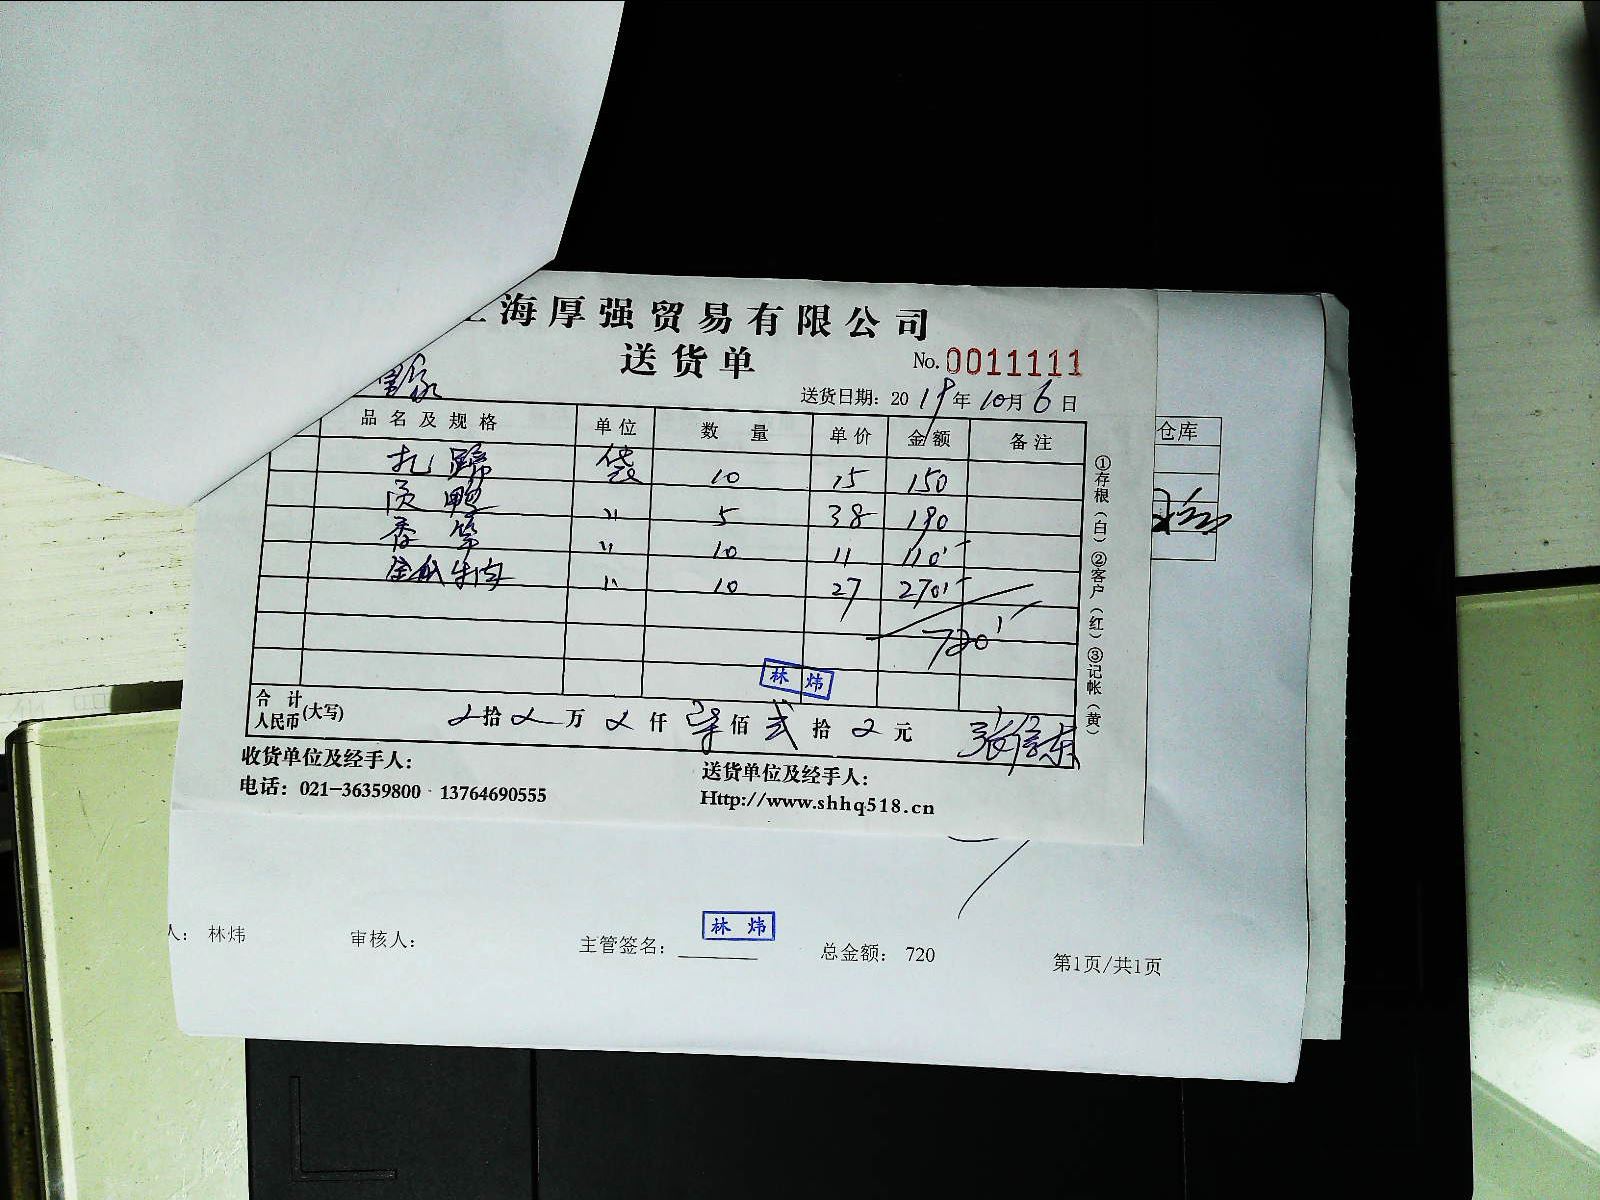 海厚强贸易有限公司
送货单
No. 0011111
送货日期: 2019年10月6日
品名及规格 单位 数量 单价 金额 备注
扎蹄 袋 10 15 150
鸭 〃 5 38 190
香 〃 10 11 110
牛肉 〃 10 27 270
720
林炜
合计人民币(大写) 拾 万 仟 柒佰 贰拾 元 张信东
收货单位及经手人:
送货单位及经手人:
电话: 021-36359800 13764690555
Http://www.shhq518.cn
①存根(白)②客户(红)③记帐(黄)
仓库
人: 林炜
审核人:
主管签名:
林炜
总金额: 720
第1页/共1页